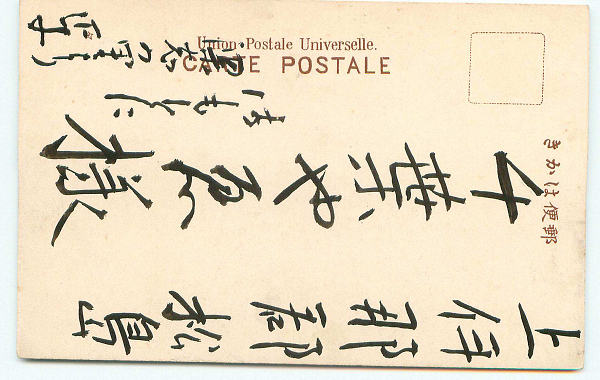 Union Postale Universelle.
CARTE POSTALE
きかは便郵
上伊那郡松島
千葉やゑ様